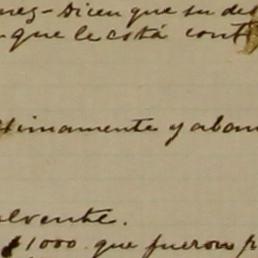 nez - Dicen que su deb
que le está cont
ltimamente y aban
olvente.
$1000. que fueron p